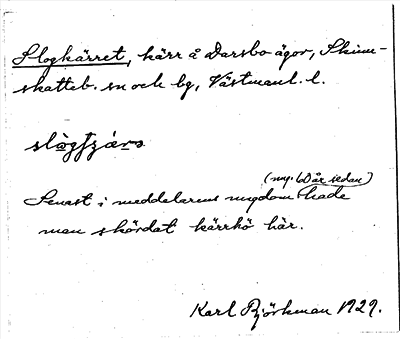 Slogkärret, kärr å Darsbo ägor, Skinn-
skatteb. sn och bg, Västmanl. l.
slògſʒærs
(omkr. 60 år sedan)
Senast i meddelarens ungdom hade
man skördat kärrhö här.
Karl Björkman 1929.